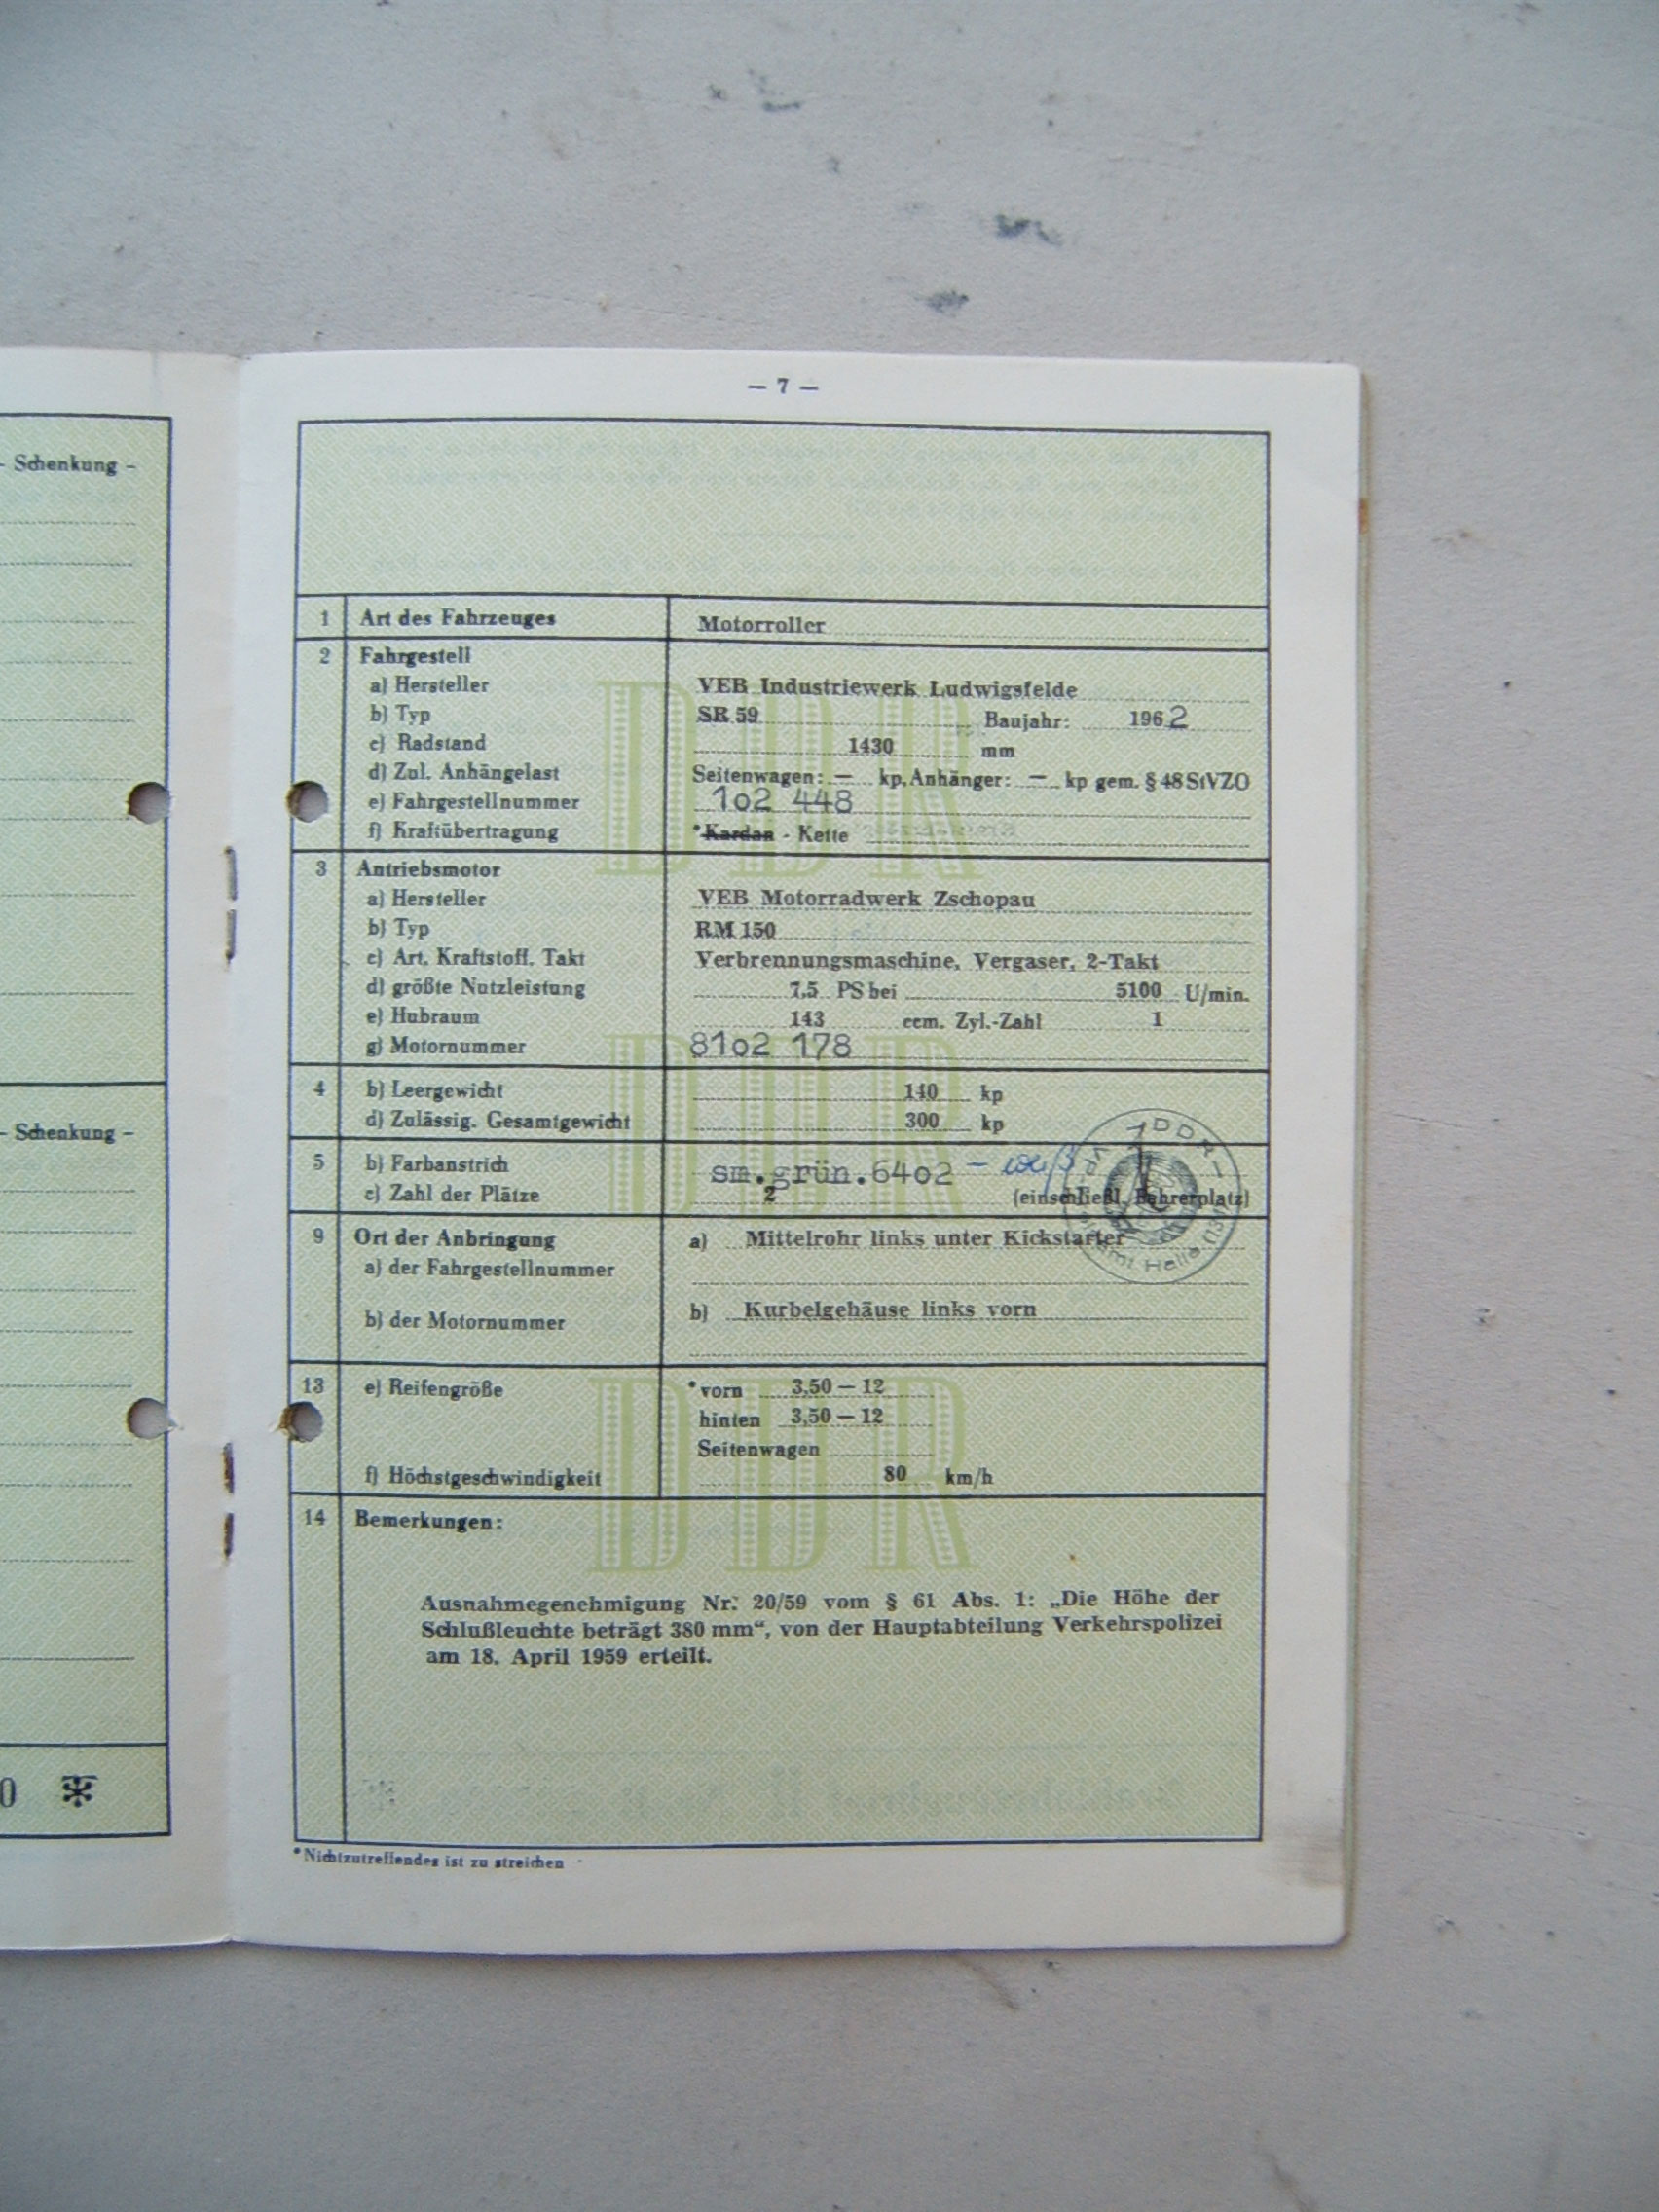 - Schenkung -
- Schenkung -
0
— 7 —
1 Art des Fahrzeuges Motorroller
2 Fahrgestell
a) Hersteller VEB Industriewerk Ludwigsfelde
b) Typ SR 59 Baujahr: 1962
c) Radstand 1430 mm
d) Zul. Anhängelast Seitenwagen: — kp, Anhänger: — kp gem. § 48 StVZO
e) Fahrgestellnummer 1o2 448
f) Kraftübertragung *Kardan - Kette
3 Antriebsmotor
a) Hersteller VEB Motorradwerk Zschopau
b) Typ RM 150
c) Art, Kraftstoff, Takt Verbrennungsmaschine, Vergaser, 2-Takt
d) größte Nutzleistung 7,5 PS bei 5100 U/min.
e) Hubraum 143 ccm. Zyl.-Zahl 1
g) Motornummer 81o2 178
4 b) Leergewicht 140 kp
d) Zulässig. Gesamtgewicht 300 kp
5 b) Farbanstrich sm.grün.64o2 - weiß
c) Zahl der Plätze 2 (einschließl. Fahrerplatz)
DDR
9 Ort der Anbringung a) Mittelrohr links unter Kickstarter
a) der Fahrgestellnummer
b) der Motornummer b) Kurbelgehäuse links vorn
13 e) Reifengröße *vorn 3,50 — 12
hinten 3,50 — 12
Seitenwagen
f) Höchstgeschwindigkeit 80 km/h
14 Bemerkungen:
Ausnahmegenehmigung Nr. 20/59 vom § 61 Abs. 1: „Die Höhe der
Schlußleuchte beträgt 380 mm“, von der Hauptabteilung Verkehrspolizei
am 18. April 1959 erteilt.
*Nichtzutreffendes ist zu streichen
DDR
DDR
DDR